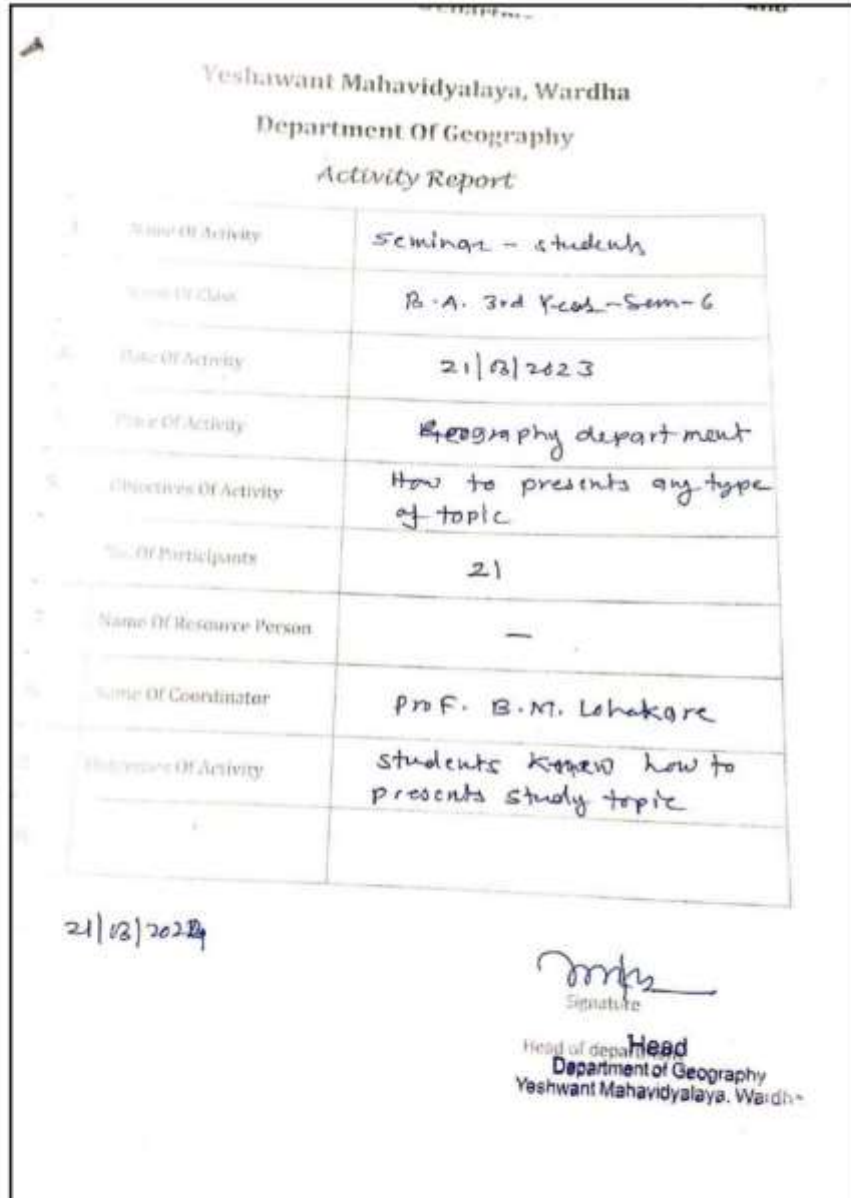 Yeshawant Mahavidyalaya, Wardha
Department Of Geography
Activity Report
Name Of Activity
Seminar - students
Name Of Class
B.A. 3rd Year - Sem - 6
Date Of Activity
21/03/2023
Place Of Activity
Geography department
Objectives Of Activity
How to presents any type
of topic
No. Of Participants
21
7. Name Of Resource Person
—
Name Of Coordinator
Prof. B.M. Lohakare
Outcomes Of Activity
students knew how to
presents study topic
21/03/
Signature
Head of department
Head
Department of Geography
Yeshwant Mahavidyalaya, Wardha